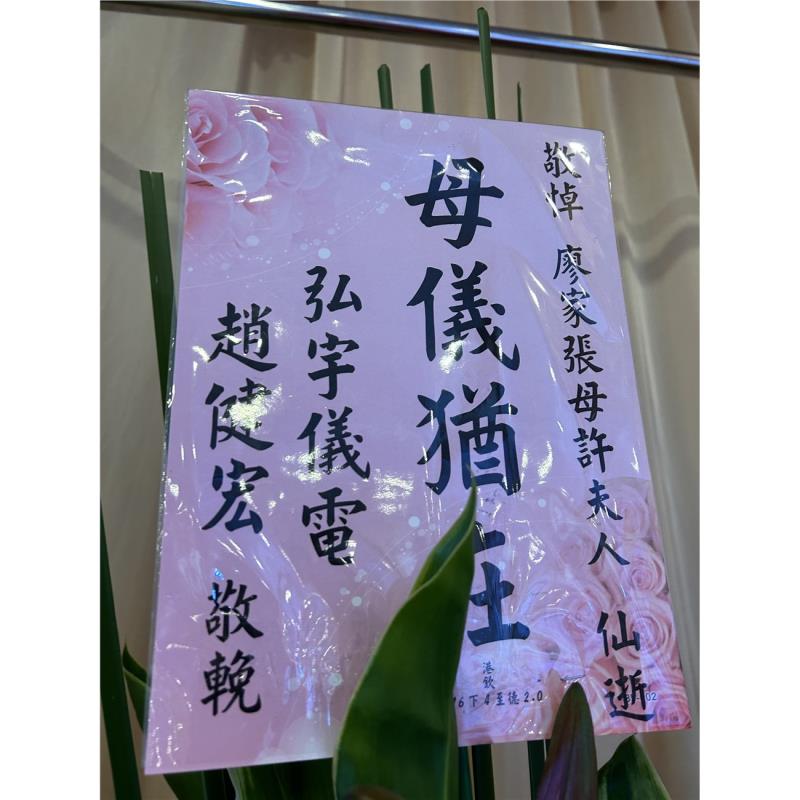 敬悼 廖家張母許夫人 仙逝
母儀猶在
弘宇儀電
趙健宏 敬輓
港欽
16下4至德2.0
02